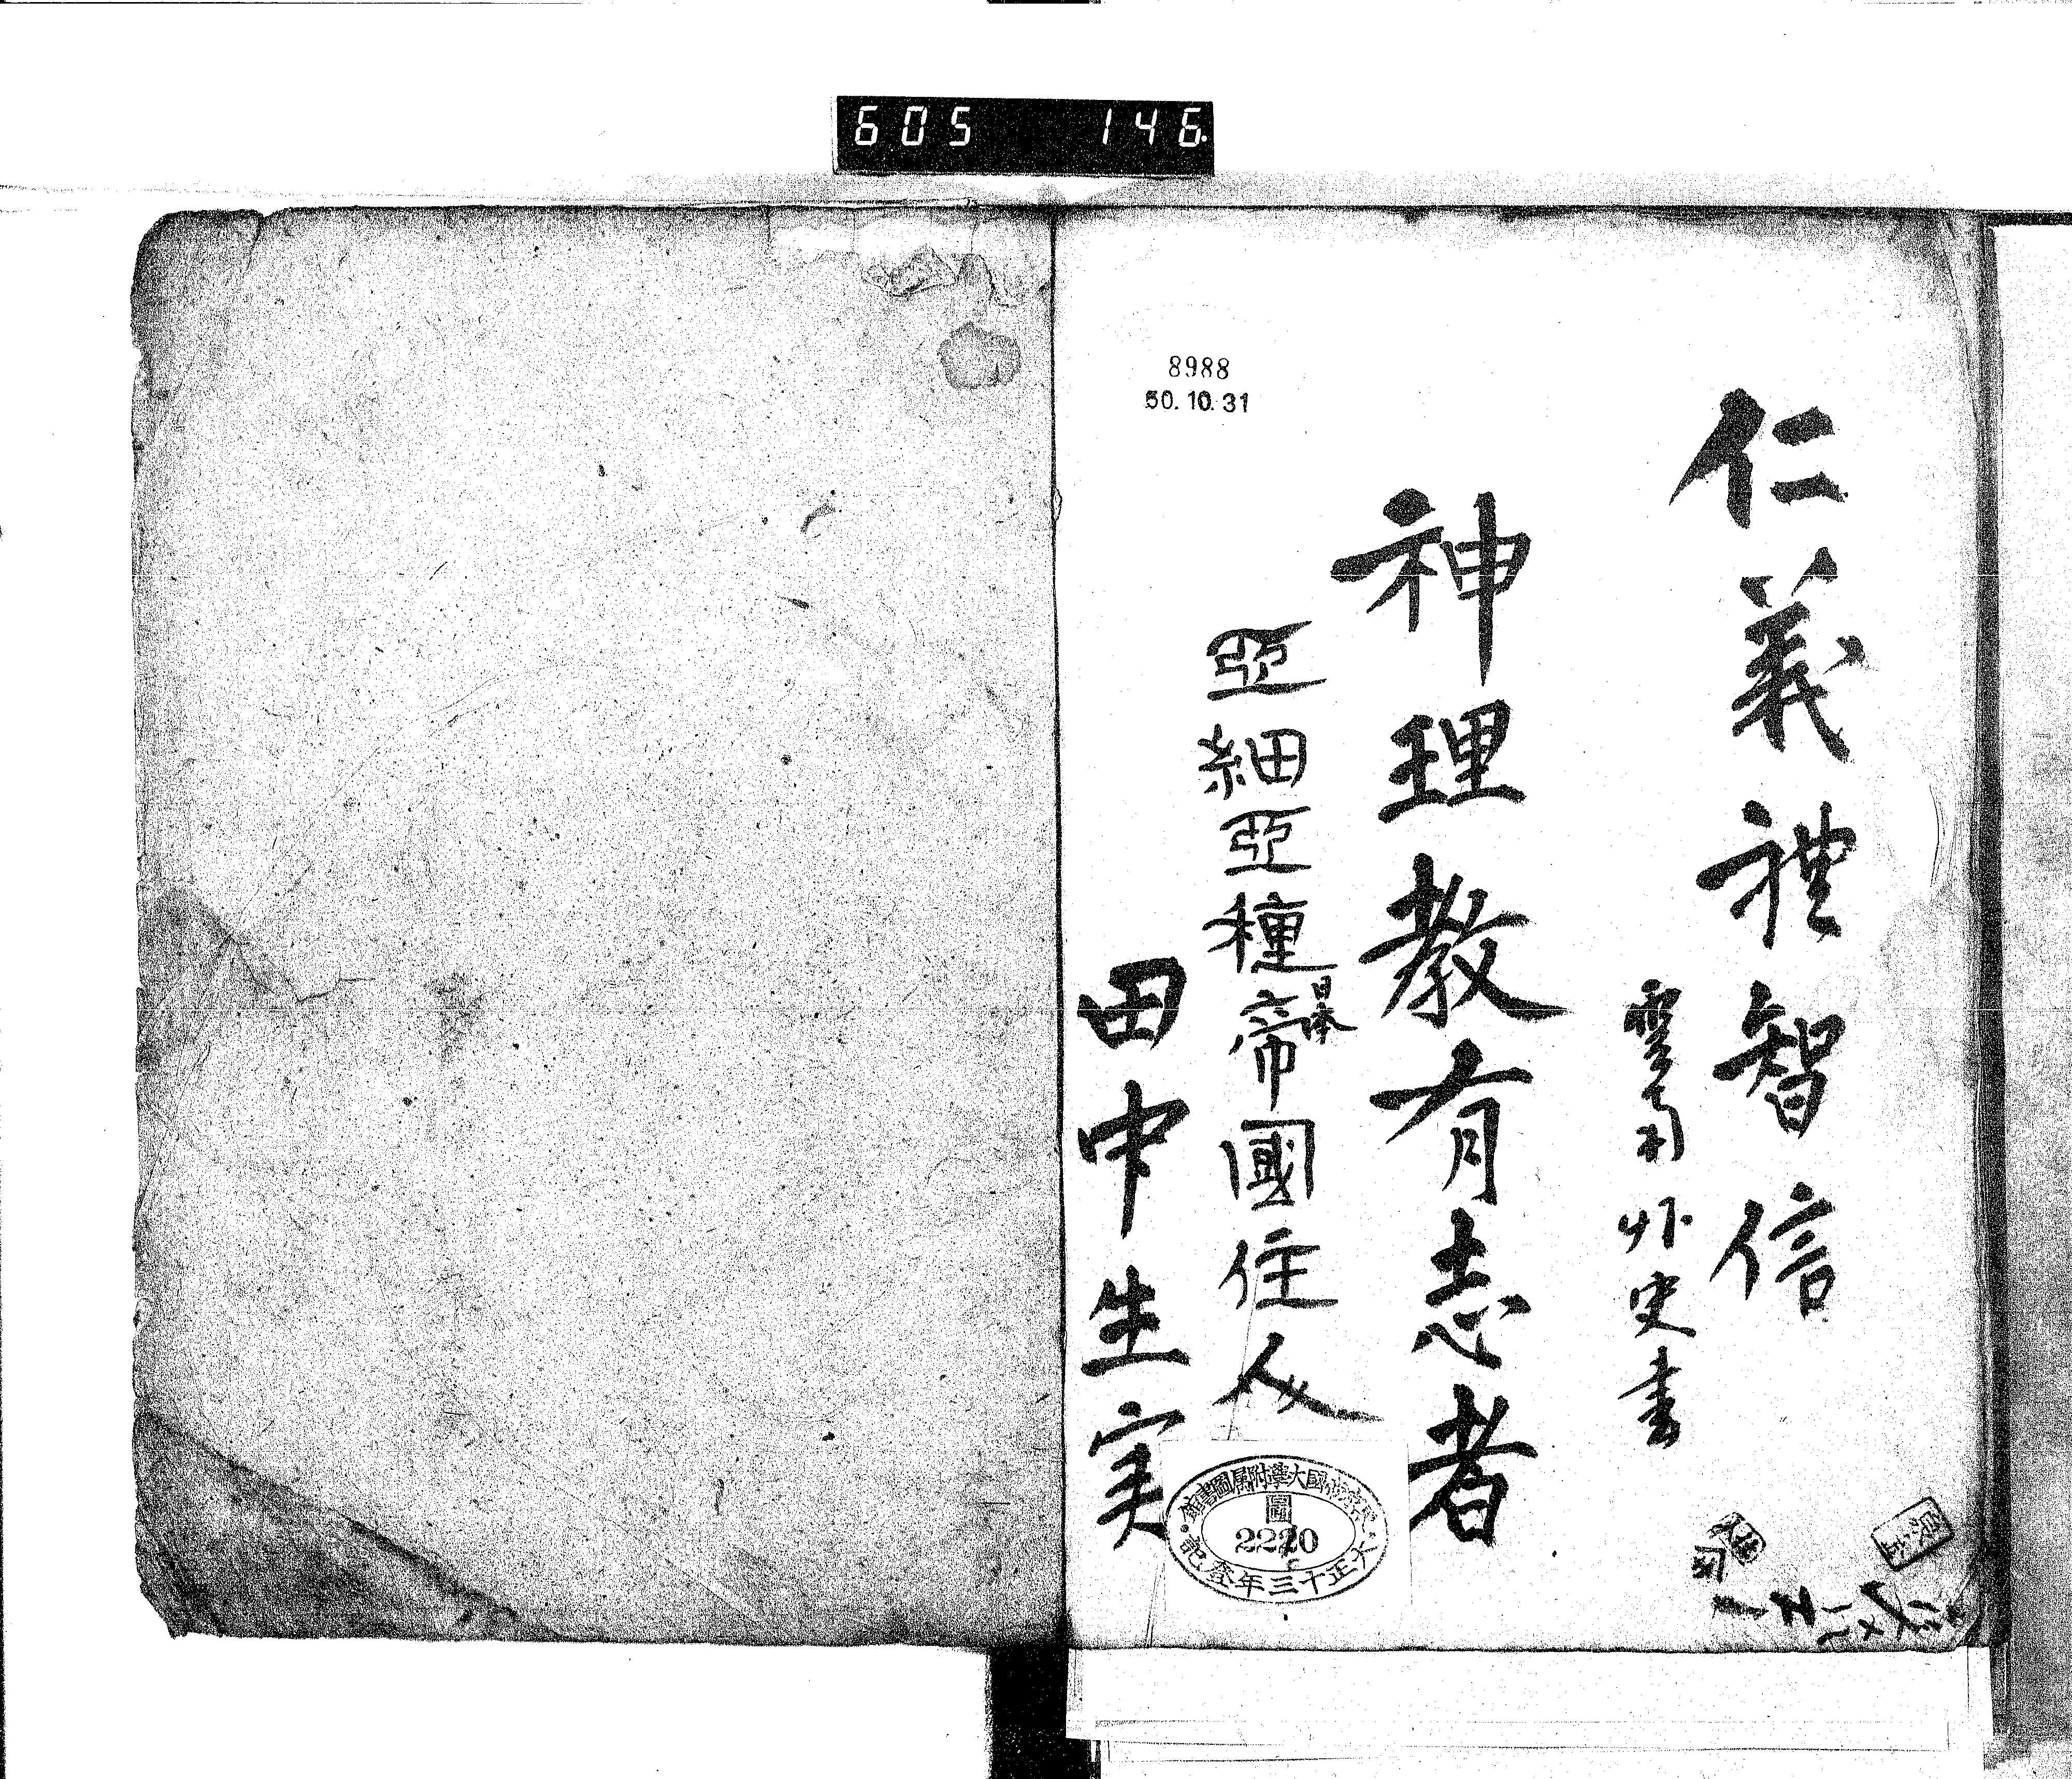 605 146.
8988
50.10.31
仁義禮智信
史書
神理教有志者
亞細亞種帝國住人
日本
田中生実
東京帝國大學附属圖書館
圖
2220
大正十三年登記